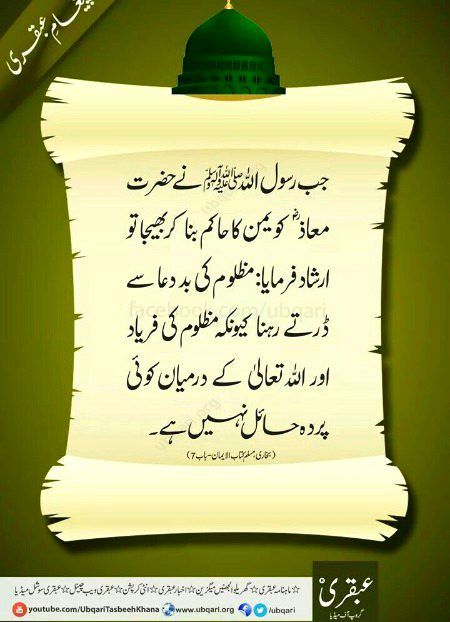 پیغامِ عبقری
جب رسول اللہ ﷺ نے حضرت
معاذؓ کو یمن کا حاکم بنا کر بھیجا تو
ارشاد فرمایا: مظلوم کی بددعا سے
ڈرتے رہنا کیونکہ مظلوم کی فریاد
اور اللہ تعالیٰ کے درمیان کوئی
پردہ حائل نہیں ہے۔
(بخاری، مسلم کتاب الایمان۔ باب 7)
facebook.com/ubqari
ubqari.org
عبقری
گروپ آف میڈیا
☆ ماہنامہ عبقری ☆ گھریلو الجھنیں میگزین ☆ اخبار عبقری ☆ انٹی کرپشن ☆ عبقری ویب چینل ☆ عبقری سوشل میڈیا
youtube.com/UbqariTasbeehKhana www.ubqari.org /ubqari